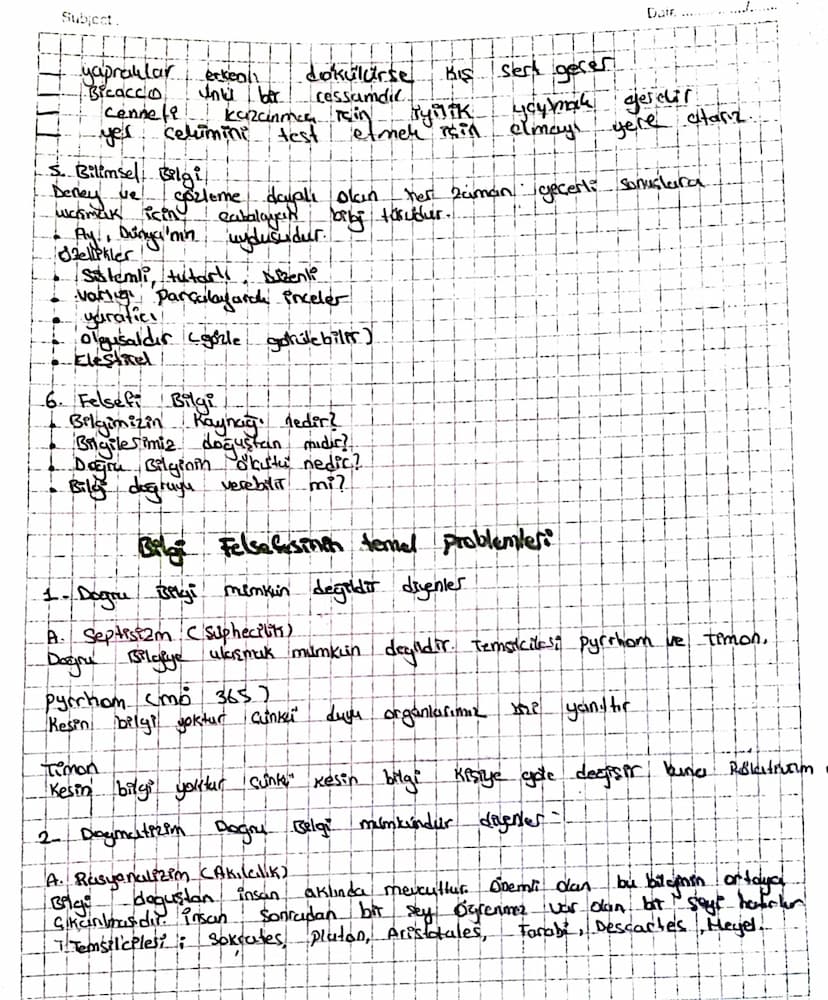 Subject :
Date ............/......
— yapraklar erkenli dökülürse kış sert geçer
— Bicacco ünlü bir ressamdır
— Cenneti kazanmak için iyilik yapmak gerekir
— yer çekimini test etmek için elmayı yere atarız.
5. Bilimsel Bilgi
Deney ve gözleme dayalı olan her zaman geçerli sonuçlara
ulaşmak için çabalayan bilgi türüdür.
• Ay, Dünya'nın uydusudur.
Özellikler
• Sistemli, tutarlı, Düzenli
• varlığı parçalayarak inceler
• yaratıcı
• Olgusaldır (gözle görülebilir)
• Eleştirel
6. Felsefi Bilgi
• Bilgimizin Kaynağı nedir?
• Bilgilerimiz doğuştan mıdır?
• Doğru Bilginin ölçütü nedir?
• Bilgi doğruyu verebilir mi?
Bilgi Felsefesinin temel problemleri
1- Doğru Bilgi mümkün değildir diyenler
A. Septisizm (Şüphecilik)
Doğru Bilgiye ulaşmak mümkün değildir. Temsilcilesi Pyrrhom ve Timon.
Pyrrhom (mö 365)
Kesin bilgi yoktur çünkü duyu organlarımız bizi yanıltır
Timon
Kesin bilgi yoktur çünkü kesin bilgi kişiye göre değişir buna
2- Dogmatizim Doğru Bilgi mümkündür diyenler
A. Rasyonalizim (Akılcılık)
Bilgi doğuştan insan aklında mevcuttur Önemli olan bu bilginin ortaya
çıkarılmasıdır. İnsan sonradan bir şey öğrenmez var olan bir şeyi hatırlar
Temsilcilesi ; Sokrates, Platon, Aristotales, Farabi, Descartes, Hegel.